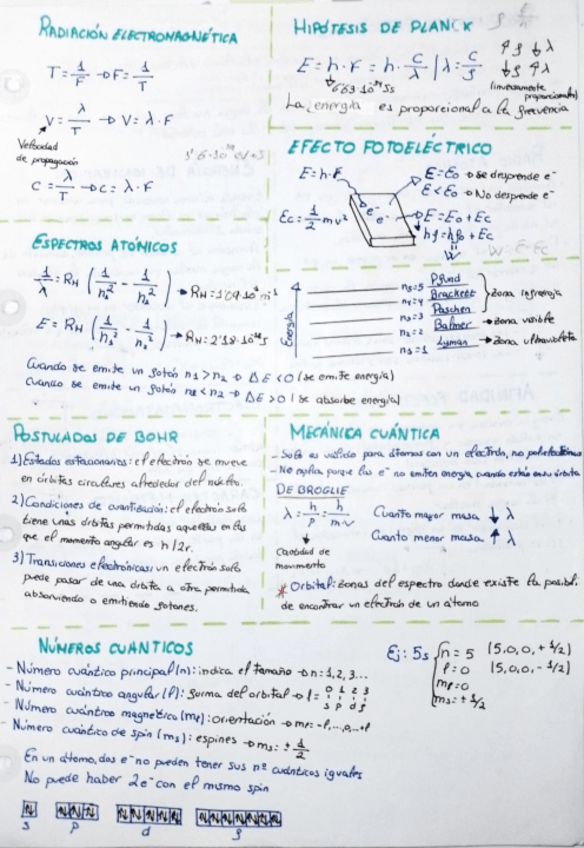 RADIACIÓN ELECTROMAGNÉTICA
T = 1/F → F = 1/T
V = λ/T → V = λ·F
Velocidad
de propagación
C = λ/T → c = λ·F
HIPÓTESIS DE PLANCK
E = h·F = h·C/λ | λ = C/f
↑f ↓λ
↓f ↑λ
(inversamente
proporcionales)
La energía es proporcional a la frecuencia
EFECTO FOTOELÉCTRICO
E = h·F
Ec = 1/2 mv²
e⁻ e⁻
E = E0 → Se desprende e⁻
E < E0 → No desprende e⁻
E = E0 + Ec
hf = hf0 + Ec
W
ESPECTROS ATÓNICOS
1/λ = RH (1/n1² - 1/n2²) → RH =
E = RH (1/n1² - 1/n2²) → RH = 2'18·10⁻¹⁸ J
Cuando se emite un fotón n1 > n2 → ΔE < 0 (se emite energía)
Cuando se emite un fotón n1 < n2 → ΔE > 0 (se absorbe energía)
Energía
n5=5 Pfund
n4=4 Brackett
Zona infrarroja
n3=3 Paschen
n2=2 Balmer → Zona visible
n1=1 Lyman → Zona ultravioleta
POSTULADOS DE BOHR
1) Estados estacionarios: el electrón se mueve
en órbitas circulares alrededor del núcleo.
2) Condiciones de cuantización: el electrón solo
tiene unas órbitas permitidas aquellas en las
que el momento angular es h/2π.
3) Transiciones electrónicas: un electrón solo
puede pasar de una órbita a otra permitida
absorviendo o emitiendo fotones.
MECÁNICA CUÁNTICA
- Solo es válido para átomos con un electrón, no polielectrónicos
- No explica porque los e⁻ no emiten energía cuando están en su órbita
DE BROGLIE
λ = h/p = h/m·v
Cantidad de
movimiento
Cuanto mayor masa ↓ λ
Cuanto menor masa ↑ λ
* Orbital: zonas del espectro donde existe la posibli.
de encontrar un electrón de un átomo
NÚMEROS CUÁNTICOS
- Número cuántico principal (n): indica el tamaño → n=1,2,3...
- Número cuántico angular (l): forma del orbital → l = 0 1 2 3
s p d f
- Número cuántico magnético (ml): orientación → ml= -l,...,0,...+l
- Número cuántico de spin (ms): espines → ms: ± 1/2
En un átomo, dos e⁻ no pueden tener sus nº cuánticos iguales
No puede haber 2e⁻ con el mismo spin
s p d f
Ej: 5s
n = 5 (5,0,0,+1/2)
l = 0 (5,0,0,-1/2)
ml = 0
ms = ± 1/2